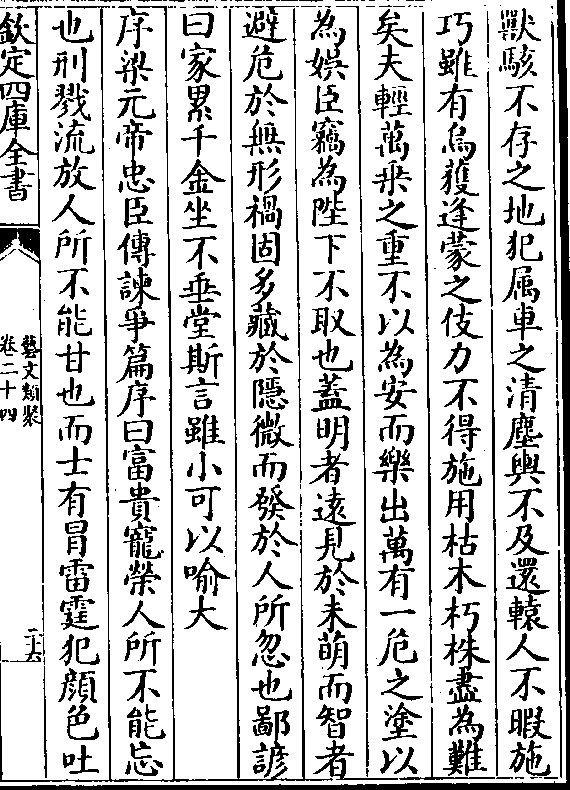 獸駭不存之地犯属車之清塵輿不及還轅人不暇施
巧雖有烏獲逢蒙之伎力不得施用枯木朽株盡為難
矣夫輕萬乗之重不以為安而樂出萬有一危之塗以
為娯臣竊為陛下不取也蓋明者逺見於未萌而智者
避危於無形禍固多藏於隱微而發於人所忽也鄙諺
曰家累千金坐不垂堂斯言雖小可以喻大
序梁元帝忠臣傳諫爭篇序曰富貴寵榮人所不能忘
也刑戮流放人所不能甘也而士有冒雷霆犯顔色吐
欽定四庫全書
藝文類聚
卷二十四
二十六